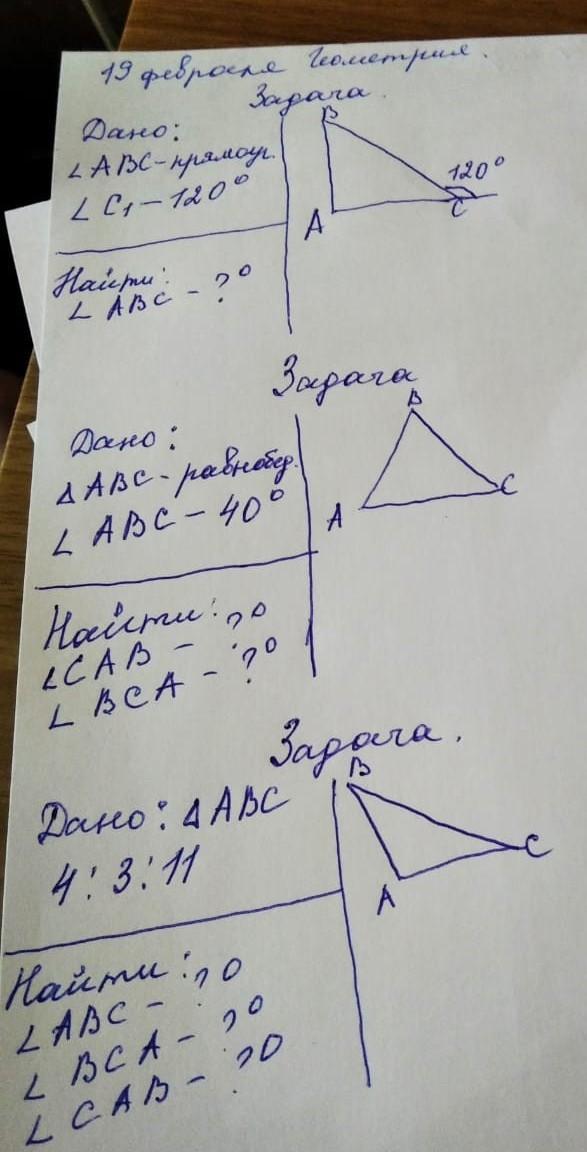 19 февраля Геометрия.
Задача.
Дано:
∠ ABC - прямоуг.
∠ C₁ - 120°
B
120°
A
C
Найти:
∠ ABC - ?°
Задача
Дано:
△ ABC - равнобед.
∠ ABC - 40°
B
A
C
Найти:
∠ CAB - ?°
∠ BCA - ?°
Задача.
Дано: △ ABC
4:3:11
B
C
A
Найти:
∠ ABC - ?°
∠ BCA - ?°
∠ CAB - ?°